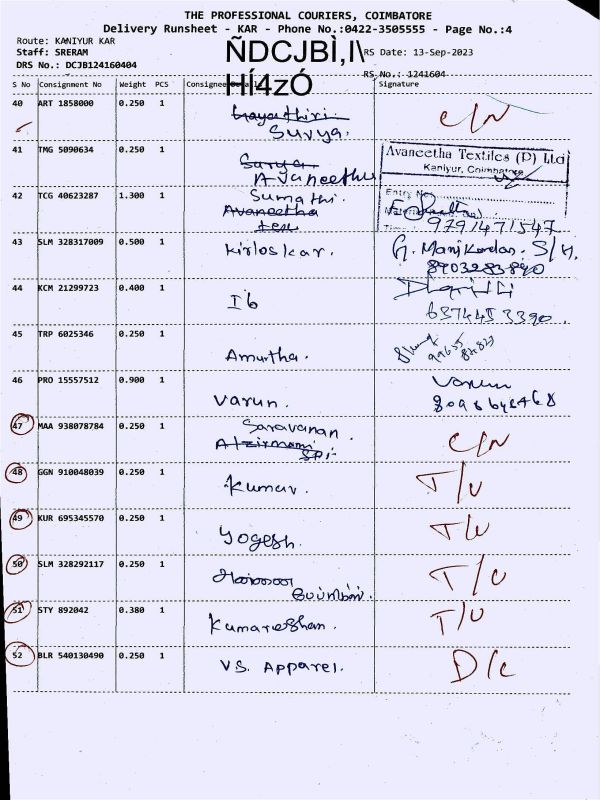 THE PROFESSIONAL COURIERS, COIMBATORE
Delivery Runsheet - KAR - Phone No.:0422-3505555 - Page No.:4
Route: KANIYUR KAR
Staff: SRERAM
DRS No.: DCJB124160404
ÑDCJBÌ,I\
HÍ4zÓ
RS Date: 13-Sep-2023
RS No.: 1241604
S No Consignment No Weight PCS Consignee Details Signature
40 ART 1858000 0.250 1 Gayathiri
Surya. C/N
41 TMG 5090634 0.250 1 Surya
Avaneetha
Avaneetha Textiles (P) Ltd
Kaniyur, Coimbatore
42 TCG 40623287 1.300 1 Sumathi.
Avaneetha
tex
Entry No
9791471547
43 SLM 328317009 0.500 1 Kirloskar. G. Manikandan. S/H.
8903283890
44 KCM 21299723 0.400 1 Ib
6374453390.
45 TRP 6025346 0.250 1 Amurtha.
46 PRO 15557512 0.900 1 Varun. Varun
47 MAA 938078784 0.250 1 Saravanan. C/N
48 GGN 910048039 0.250 1 Kumar. T/U
49 KUR 695345570 0.250 1 Yogesh. T/U
50 SLM 328292117 0.250 1 T/U
51 STY 892042 0.380 1 Kumareshan. T/U
52 BLR 540130490 0.250 1 VS. Apparel. D/C